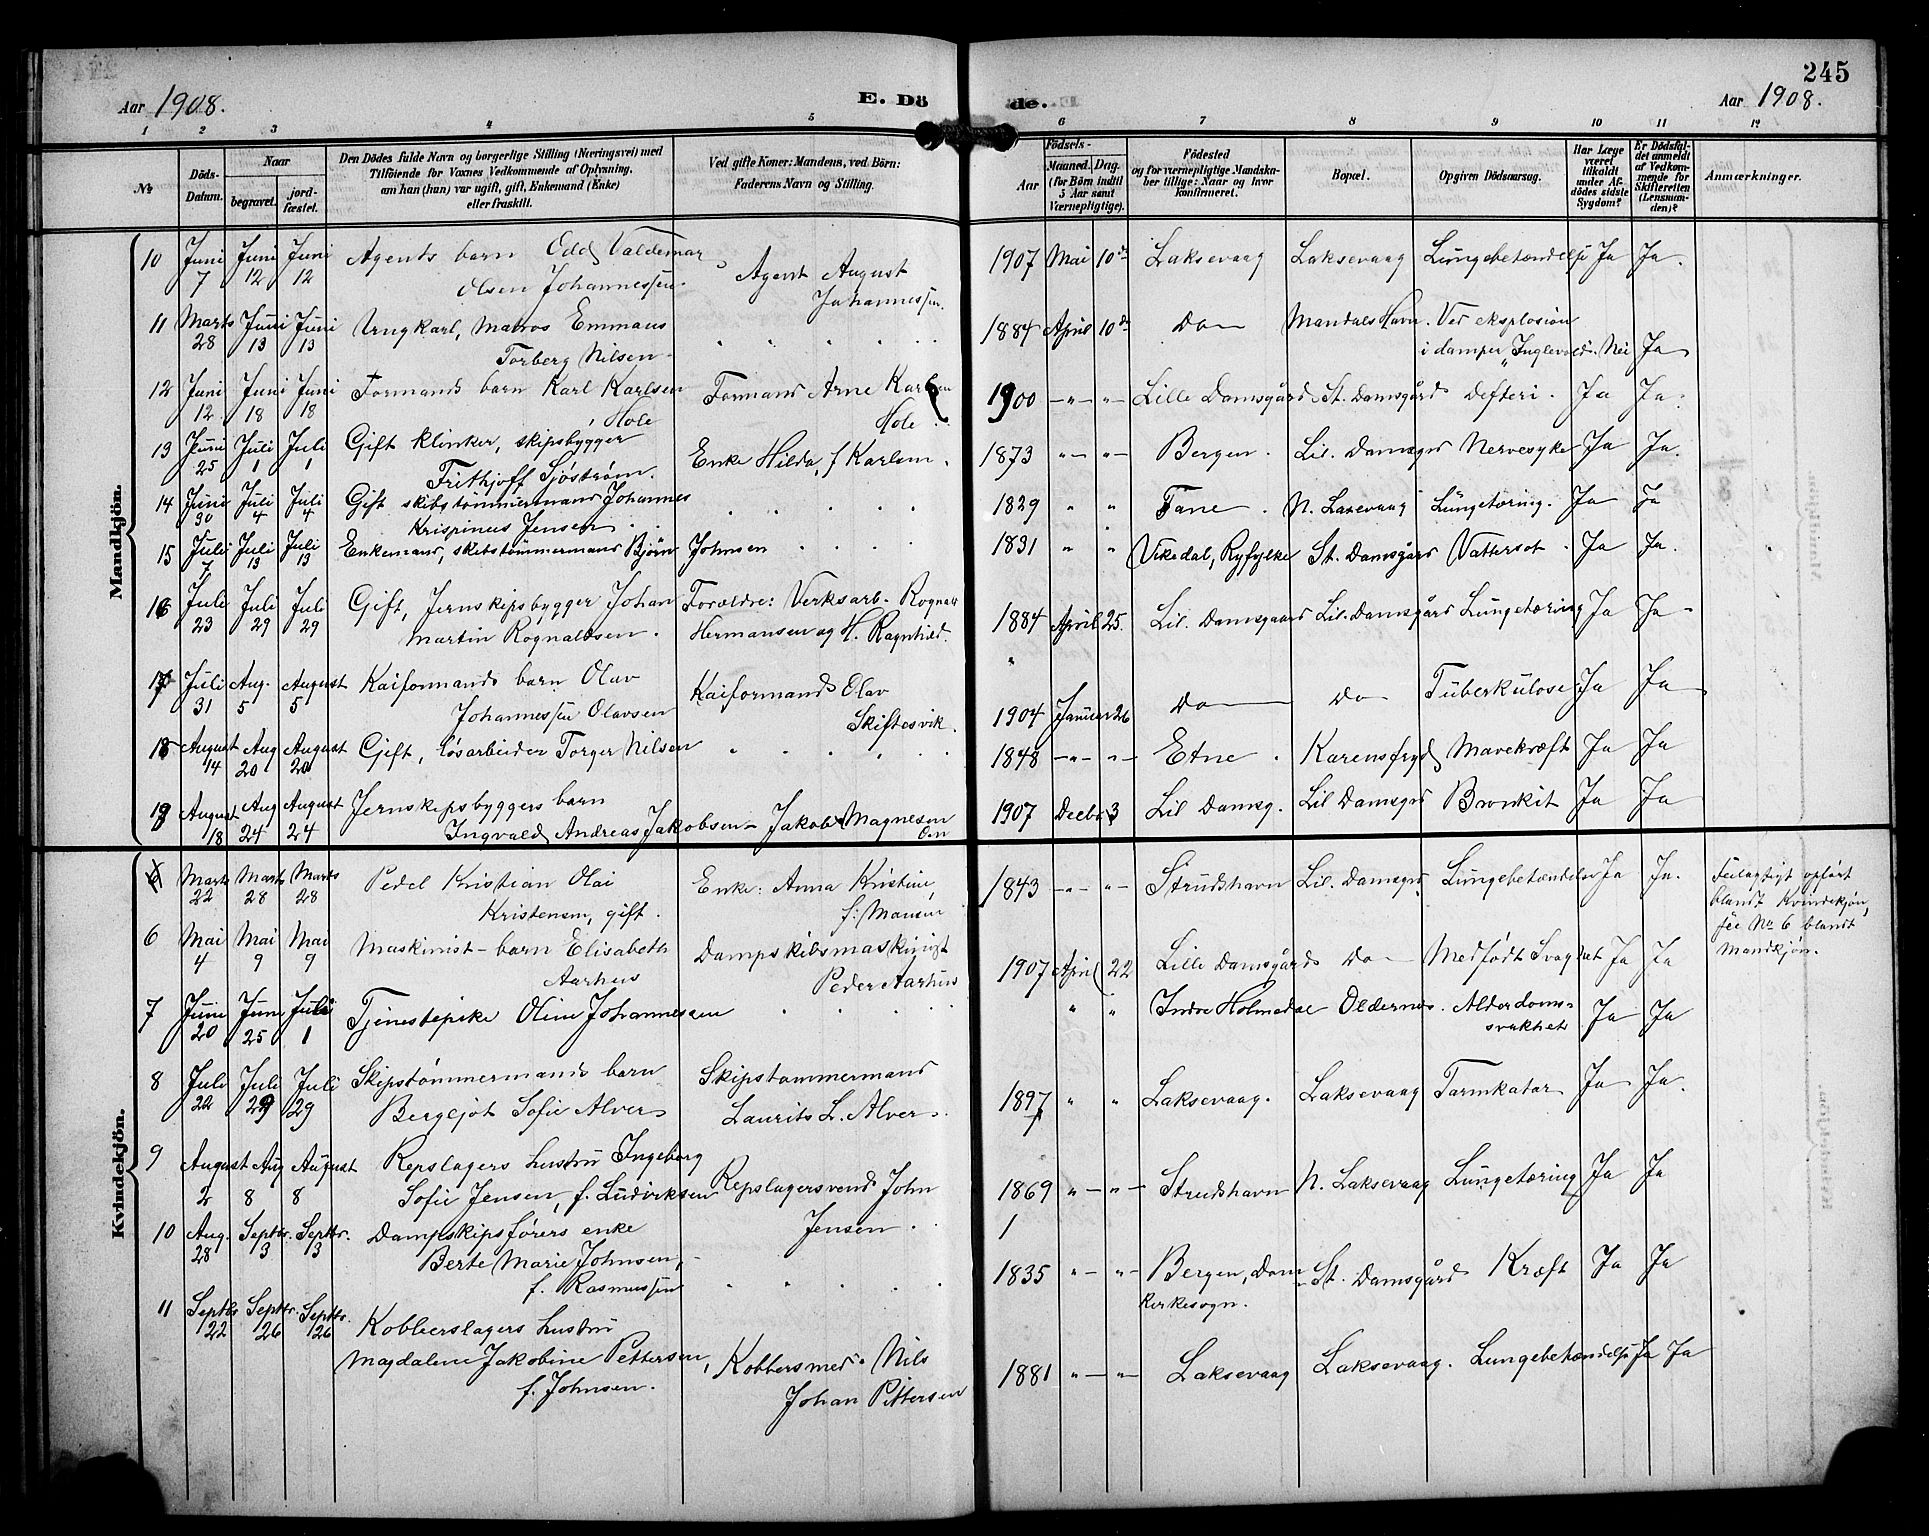 245
Aar 1908.
E. Dö
de.
Aar 1908.
1 2 3 4 5 6 7 8 9 10 11 12
No
Döds-Datum.
Naar
begravet.
jord-fæstet.
Den Dödes fulde Navn og borgerlige Stilling (Næringsvei) med
Tilföiende for Voxnes Vedkommende af Oplysning,
om han (hun) var ugift, gift, Enkemand (Enke)
eller fraskilt.
Ved gifte Koner: Mandens, ved Börn:
Faderens Navn og Stilling.
Aar
Födsels-
Maaned. Dag.
(for Börn indtil
5 Aar samt
Værnepligtige).
Födested
og for værnepligtige Mandska-
ber tillige: Naar og hvor
konfirmeret.
Bopæl.
Opgiven Dödsaarsag.
Har Læge
været
tilkaldt
under Af-
dödes sidste
Sygdom?
Er Dödsfal-
det anmeldt
af Vedkom-
mende for
Skifteretten
(Lensman-
den)?
Anmærkninger.
Mandkjön.
10 Juni 7 Juni 12 Juni 12 Agents barn Odd Valdemar
Olsen Johannessen
Agent August
Johannessen.
1907 Mai 10de Laksevaag Laksevaag Lungebetændelse Ja Ja.
11 Marts 28 Juni 13 Juni 13 Ungkarl, Matros Emmaus
Torberg Nilsen
1884 April 10de Do Mandals Havn. Ved eksplosion
i damper "Inglevold". Nei Ja
12 Juni 12. Juni 18 Juni 18 Formands barn Karl Karlsen
Hole
Formand Arne Karlsen
Hole.
1900 Lille Damsgård St. Damsgård Difteri. Ja Ja.
13 Juni 25 Juli 1 Juli 1 Gift klinker, skipsbygger
Frithjoff Sjöström.
Enke Hilda, f Karlsen.
1873 Bergen. Lil. Damsgrd Nervesyke Ja Ja.
14 Juni 30 Juli 4 Juli 4 Gift skibstömmermand Johannes
Krispinus Jensen
1829 Fane. N. Laxevaag Lungetæring. Ja Ja
15 Juli 7 Juli 13 Juli 13 Enkemand, skibstömmermand Björn Johnsen
1831 Vikedal, Ryfylke St. Damsgård Vattersot. Ja Ja.
16 Juli 23 Juli 29 Juli 29 Gift, Jernskipsbygger Johan
Martin Rognaldsen.
Forældre: Verksarb. Rognald
Hermansen og H. Ragnhild.
1884 April 25. Lil. Damsgaard Lil. Damsgård Lungetæring Ja Ja
17 Juli 31 Aug. 5 August 5 Kaiformands barn Olav
Johannessen Olavsen
Kaiformand Olav
Skiftesvik.
1904 Januar 26 Do Do Tuberkulose Ja Ja
18 August 14 Aug 20 August 20 Gift, lösarbeider Torger Nilsen
1848 Etne. Karensfryd Mavekræft Ja Ja
19 August 18 Aug 24 August 24 Jernskipsbyggers barn
Ingvald Andreas Jakobsen Jakob Magnesen
1907 Decbr. 3 Lil Damsg. Lil Damsgrd Bronkit Ja Ja
Kvindekjön.
6 Marts 22 Marts 28 Marts 28 Pedel Kristian Olai
Kristensen, gift.
Enke: Anna Kristine,
f:
1843 Strudshavn Lil. Damsgrd Lungebetændelse Ja Ja.
Feilagtigt opfört
blandt Kvindekjön,
se No 6 blandt
Mandkjön.
6 Mai 4 Mai 9 Mai 9 Maskinist barn Elisabeth
Aarhus
Dampskibsmaskinist
Peder Aarhus
1907 April 22 Lille Damsgård Do Medfödt Svaghet Ja Ja
7 Juni 20 Juni 25 Juli 1 Tjenestepike Oline Johannesen
Indre Holmedal Oldernes. Alderdoms-
svakhet Ja Ja
8 Juli 22 Juli 29 Juli 29 Skipstömmermands barn
Bergljot Sofie Alver
Skipstömmermand
Laurits L. Alver.
1897 Laksevaag. Laksevaag Tarmkatar Ja Ja.
9 August 2 Aug 8 August 8 Repslagers hustru Ingeborg
Sofie Jensen, f. Ludviksen
Repslagersvend John
Jensen.
1869 Strudshavn N. Laksevaag Lungetæring Ja Ja
10 Aug. 28 Septbr. 3 Septbr. 3 Dampskipsförers enke
Berte Marie Johnsen,
f. Rasmussen
1835 Bergen, Dom
kirkesogn. St. Damsgård Kræft Ja Ja
11 Septbr 22 Septbr. 26 Septbr. 26 Kobberslagers hustru
Magdalene Jakobine Pettersen,
f. Johnsen.
Kobbersmed Nils
Johan Pettersen
1881 Laksevaag Laksevaag. Lungebetændelse Ja Ja